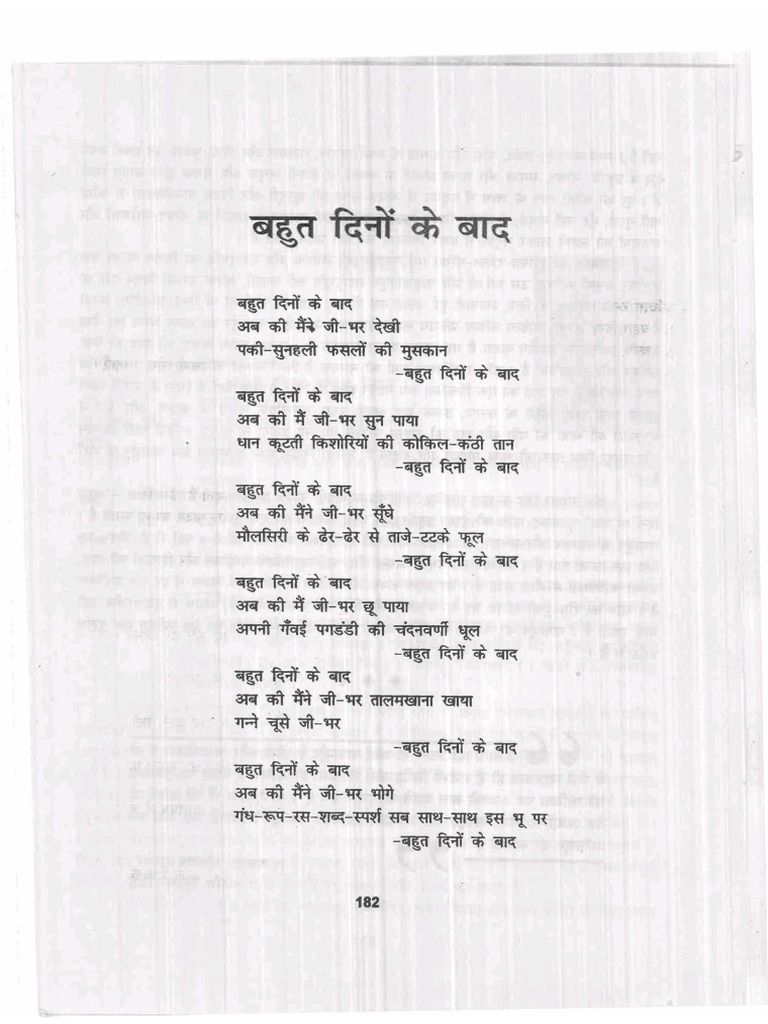 बहुत दिनों के बाद
बहुत दिनों के बाद
अब की मैंने जी-भर देखी
पकी-सुनहली फसलों की मुसकान
-बहुत दिनों के बाद
बहुत दिनों के बाद
अब की मैं जी-भर सुन पाया
धान कूटती किशोरियों की कोकिल-कंठी तान
-बहुत दिनों के बाद
बहुत दिनों के बाद
अब की मैंने जी-भर सूँघे
मौलसिरी के ढेर-ढेर से ताजे-टटके फूल
-बहुत दिनों के बाद
बहुत दिनों के बाद
अब की मैं जी-भर छू पाया
अपनी गँवई पगडंडी की चंदनवर्णी धूल
-बहुत दिनों के बाद
बहुत दिनों के बाद
अब की मैंने जी-भर तालमखाना खाया
गन्ने चूसे जी-भर
-बहुत दिनों के बाद
बहुत दिनों के बाद
अब की मैंने जी-भर भोगे
गंध-रूप-रस-शब्द-स्पर्श सब साथ-साथ इस भू पर
-बहुत दिनों के बाद
182